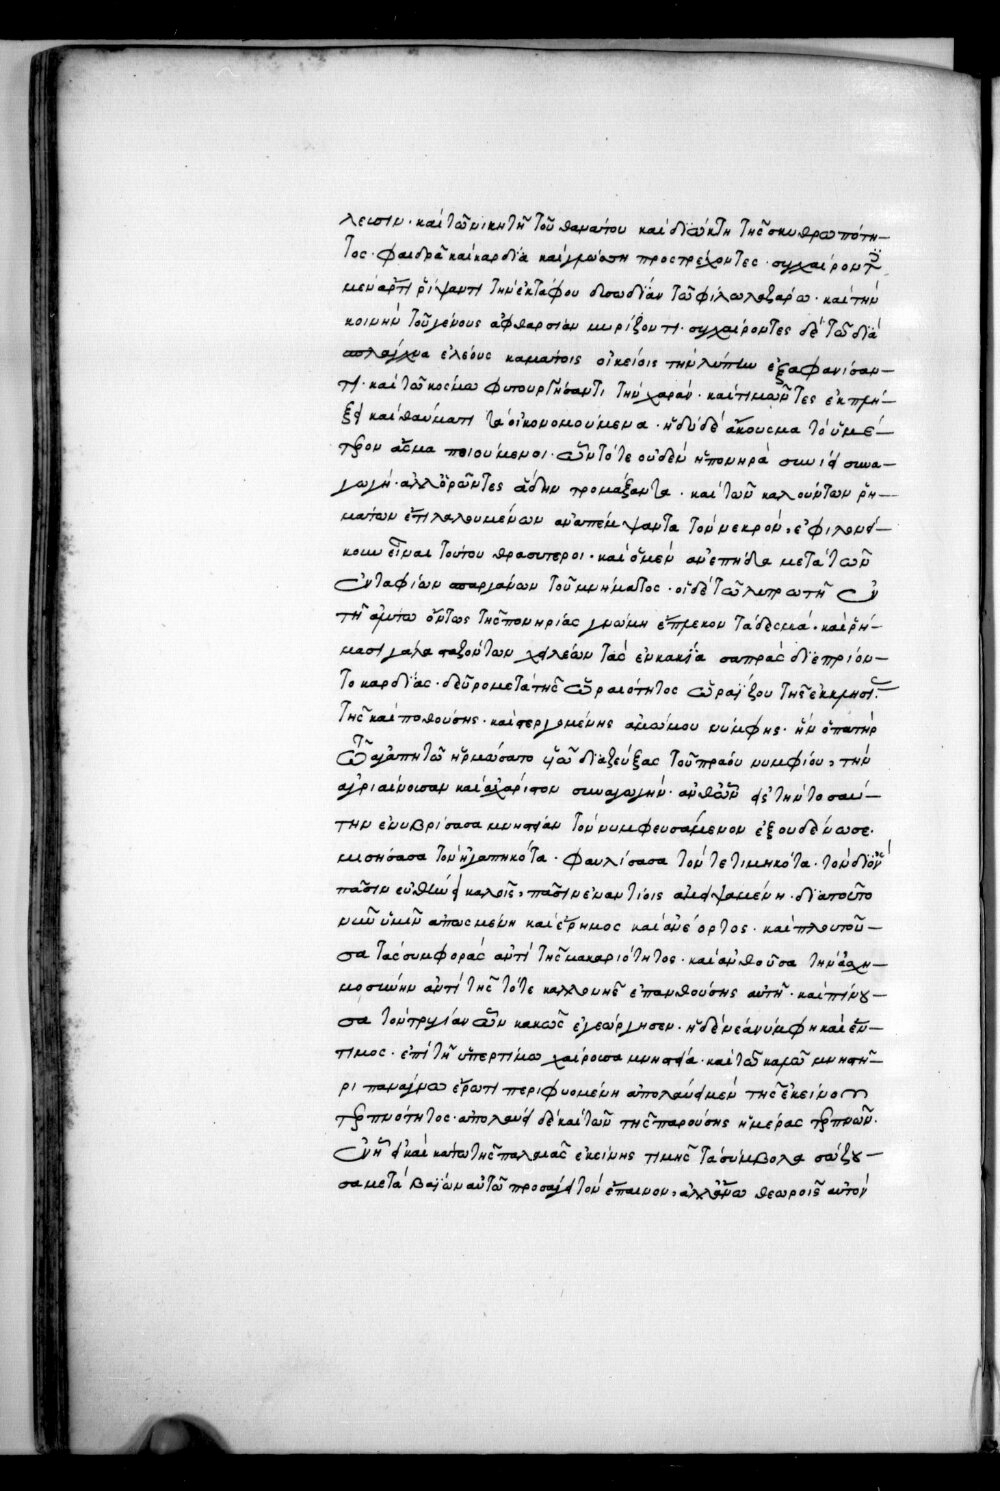 λεισιν· καὶ τῶ νικητῆ τοῦ θανάτου καὶ διώκτη τῆς σκυθρωπότη-
τος· φαιδρᾶ καὶ καρδία καὶ γλώσση προστρέχοντες· συγχαίροντες
μὲν ἄρτι ῥίψαντι τὴν ἐκ τάφου δυσωδίαν τῶ φίλω λαζάρω· καὶ τὴν
κοινὴν τοῦ γένους ἀφθαρσίαν μυρίζοντι· συγχαίροντες δὲ τῶ διὰ
σπλάγχνα ἐλέους καμάτοις οἰκείοις τὴν λύπην ἐξαφανίσαν-
τι· καὶ τῶ κόσμω φυτουργήσαντι τὴν χαράν· καὶ τιμῶντες ἐκπλή-
ξει καὶ θαύματι τὰ οἰκονομούμενα· ἡδὺ δὲ ἄκουσμα τὸ ὑμέ-
τερον ἆσμα ποιούμενοι· ὧν τότε οὐδὲν ἡ πονηρὰ συνιεῖ συνα-
γωγή· ἀλλ' ὁρῶντες ἅδην τρομάξαντα· καὶ τῶν καλούντων ῥη-
μάτων ἔτι λαλουμένων ἀναπέμψαντα τὸν νεκρὸν, ἐφιλονεί-
κουν εἶναι τούτου θρασύτεροι· καὶ ὁ μὲν ἀνεπήδα μετὰ τῶν
ἐνταφίων σπαργάνων τοῦ μνήματος· οἱ δὲ τῶ λυτρωτῆ ἐν
τῆ ἀμύτω ὄντως τῆς πονηρίας γνώμη ἔπλεκον τὰ δεσμά· καὶ ῥή-
μασι γάλα σταζόντων χειλέων τὰς ἐν κακία σαπρὰς διεπρίον-
το καρδίας· δεῦρο μετὰ τῆς ὡραιότητος ὡραΐζου τῆς ἐκκλησίας
τῆς καὶ ποθούσης· καὶ στεργομένης ἀμώμου νύμφης· ἣν ὁ πατὴρ
τῶ ἀγαπητῶ ἡρμόσατο υἱῶ διαζεύξας τοῦ πράου νυμφίου, τὴν
ἀγριαίνουσαν καὶ ἀχάριστον συναγωγήν· ἀνθ' ὧν εἰς τὴν τοσαύ-
την ἐνυβρίσασα μνηστείαν τὸν νυμφευσάμενον ἐξουδένωσε·
μισήσασα τὸν ἠγαπηκότα· φαυλίσασα τὸν τετιμηκότα· τὸν διὸν
πᾶσιν εὐθὺς καλοῖς, πᾶσιν ἐναντίοις ἀμειψαμένη· διὰ τοῦτο
νῦν ὑμῖν ἀπωσμένη καὶ ἔρημος καὶ ἀνέορτος· καὶ πλουτοῦ-
σα τὰς συμφορὰς ἀντὶ τῆς μακαριότητος· καὶ ἀνθοῦσα τὴν ἀσχη-
μοσύνην ἀντὶ τῆς τότε καλλονῆς ἐπανθούσης αὐτῆ· καὶ πίνου-
σα τὸν τρυγίαν ὧν κακῶς ἐγεώργησεν· ἡ δὲ νέα νύμφη καὶ ἔν-
τιμος· ἐπὶ τῆ ὑπερτίμω χαίρουσα μνηστεία· καὶ τῶ καλῶ μνηστῆ-
ρι παναγνω ἔρωτι περιφυομένη ἀπολαύει μὲν τῆς ἐκείνου
τερπνότητος· ἀπολαύει δὲ καὶ τῶν τῆς παρούσης ἡμέρας τερπνῶν·
ἐν ἧ εἰ καὶ κάτω τῆς παλαιᾶς ἐκείνης τιμῆς τὰ σύμβολα σώζου-
σα μετὰ βαΐων αὐτῶ προσάγει τὸν ἔπαινον, ἀλλ' ἄνω θεωροῖς αὐτὸν